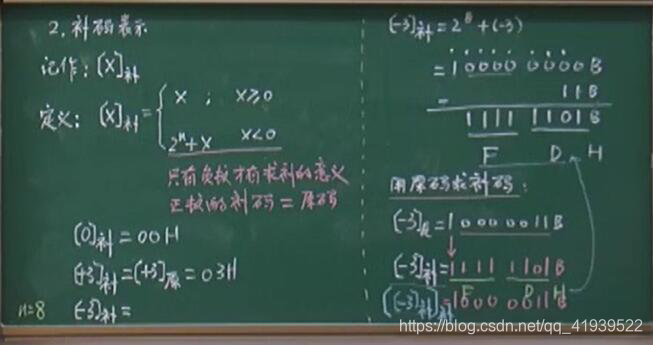 2. 补码表示
记作: [X]补
定义: [X]补 = { X ; X≥0
2ⁿ+X X<0
只有负数才有求补的意义
正数的补码 = 原码
[0]补 = 00H
[+3]补 = [+3]原 = 03H
[-3]补 =
n=8
[-3]补 = 2⁸ + (-3)
= 1 0000 0000B
- 11B
1111 1101B
F D H
用原码求补码:
[-3]原 = 1 0000011B
[-3]补 = 1111 1101B
F D H
[[-3]补]补 = 1000 0011B
https://blog.csdn.net/qq_41939522